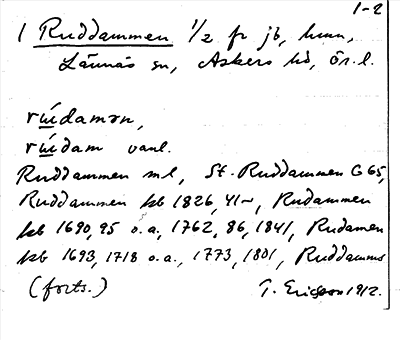 1-2
1 Ruddammen 1/2 fr jb, hmn,
Lännäs sn, Askers hd, Ör. l.
rúdamən,
rúdam vanl.
Ruddammen ml, St. Ruddammen G 65,
Ruddammen kb 1826, 41~, Rudammen
kb 1690, 95 o.a., 1762, 86, 1841, Rudamen
kb 1693, 1718 o.a., 1773, 1801, Ruddamms
(forts.) T. Ericsson 1912.